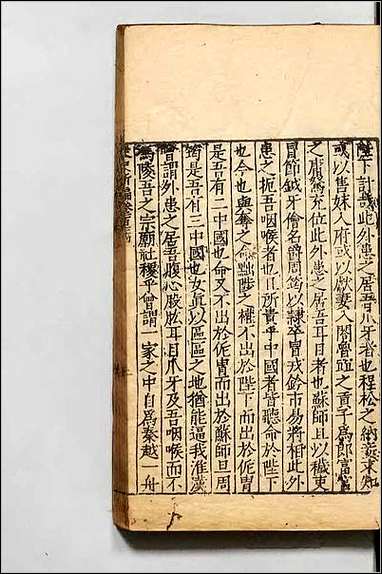 陛下計哉此外患之居吾爪牙者也程松之納妾求知
或以售妹入府或以獻妾入閤魯𧨏之貢子為郎富宮
之庸駑充位此外患之居吾耳目者也蘇師旦以穢吏
冒節鉞牙儈名爵周筠以隸卒冒戎鈐市易將相此外
患之扼吾咽喉者也且所貴乎中國者皆聽命於陛下
也今也與奪之命黜陟之權不出於陛下而出於侂冑
是吾有二中國也命又不出於侂冑而出於蘇師旦周
筠是吾有三中國也女真以區區之地猶能逼我淮漢
曾謂外患之居吾腹心股肱耳目爪牙及吾咽喉而不
為陵吾之宗廟社稷乎曾謂一家之中自為秦越一舟